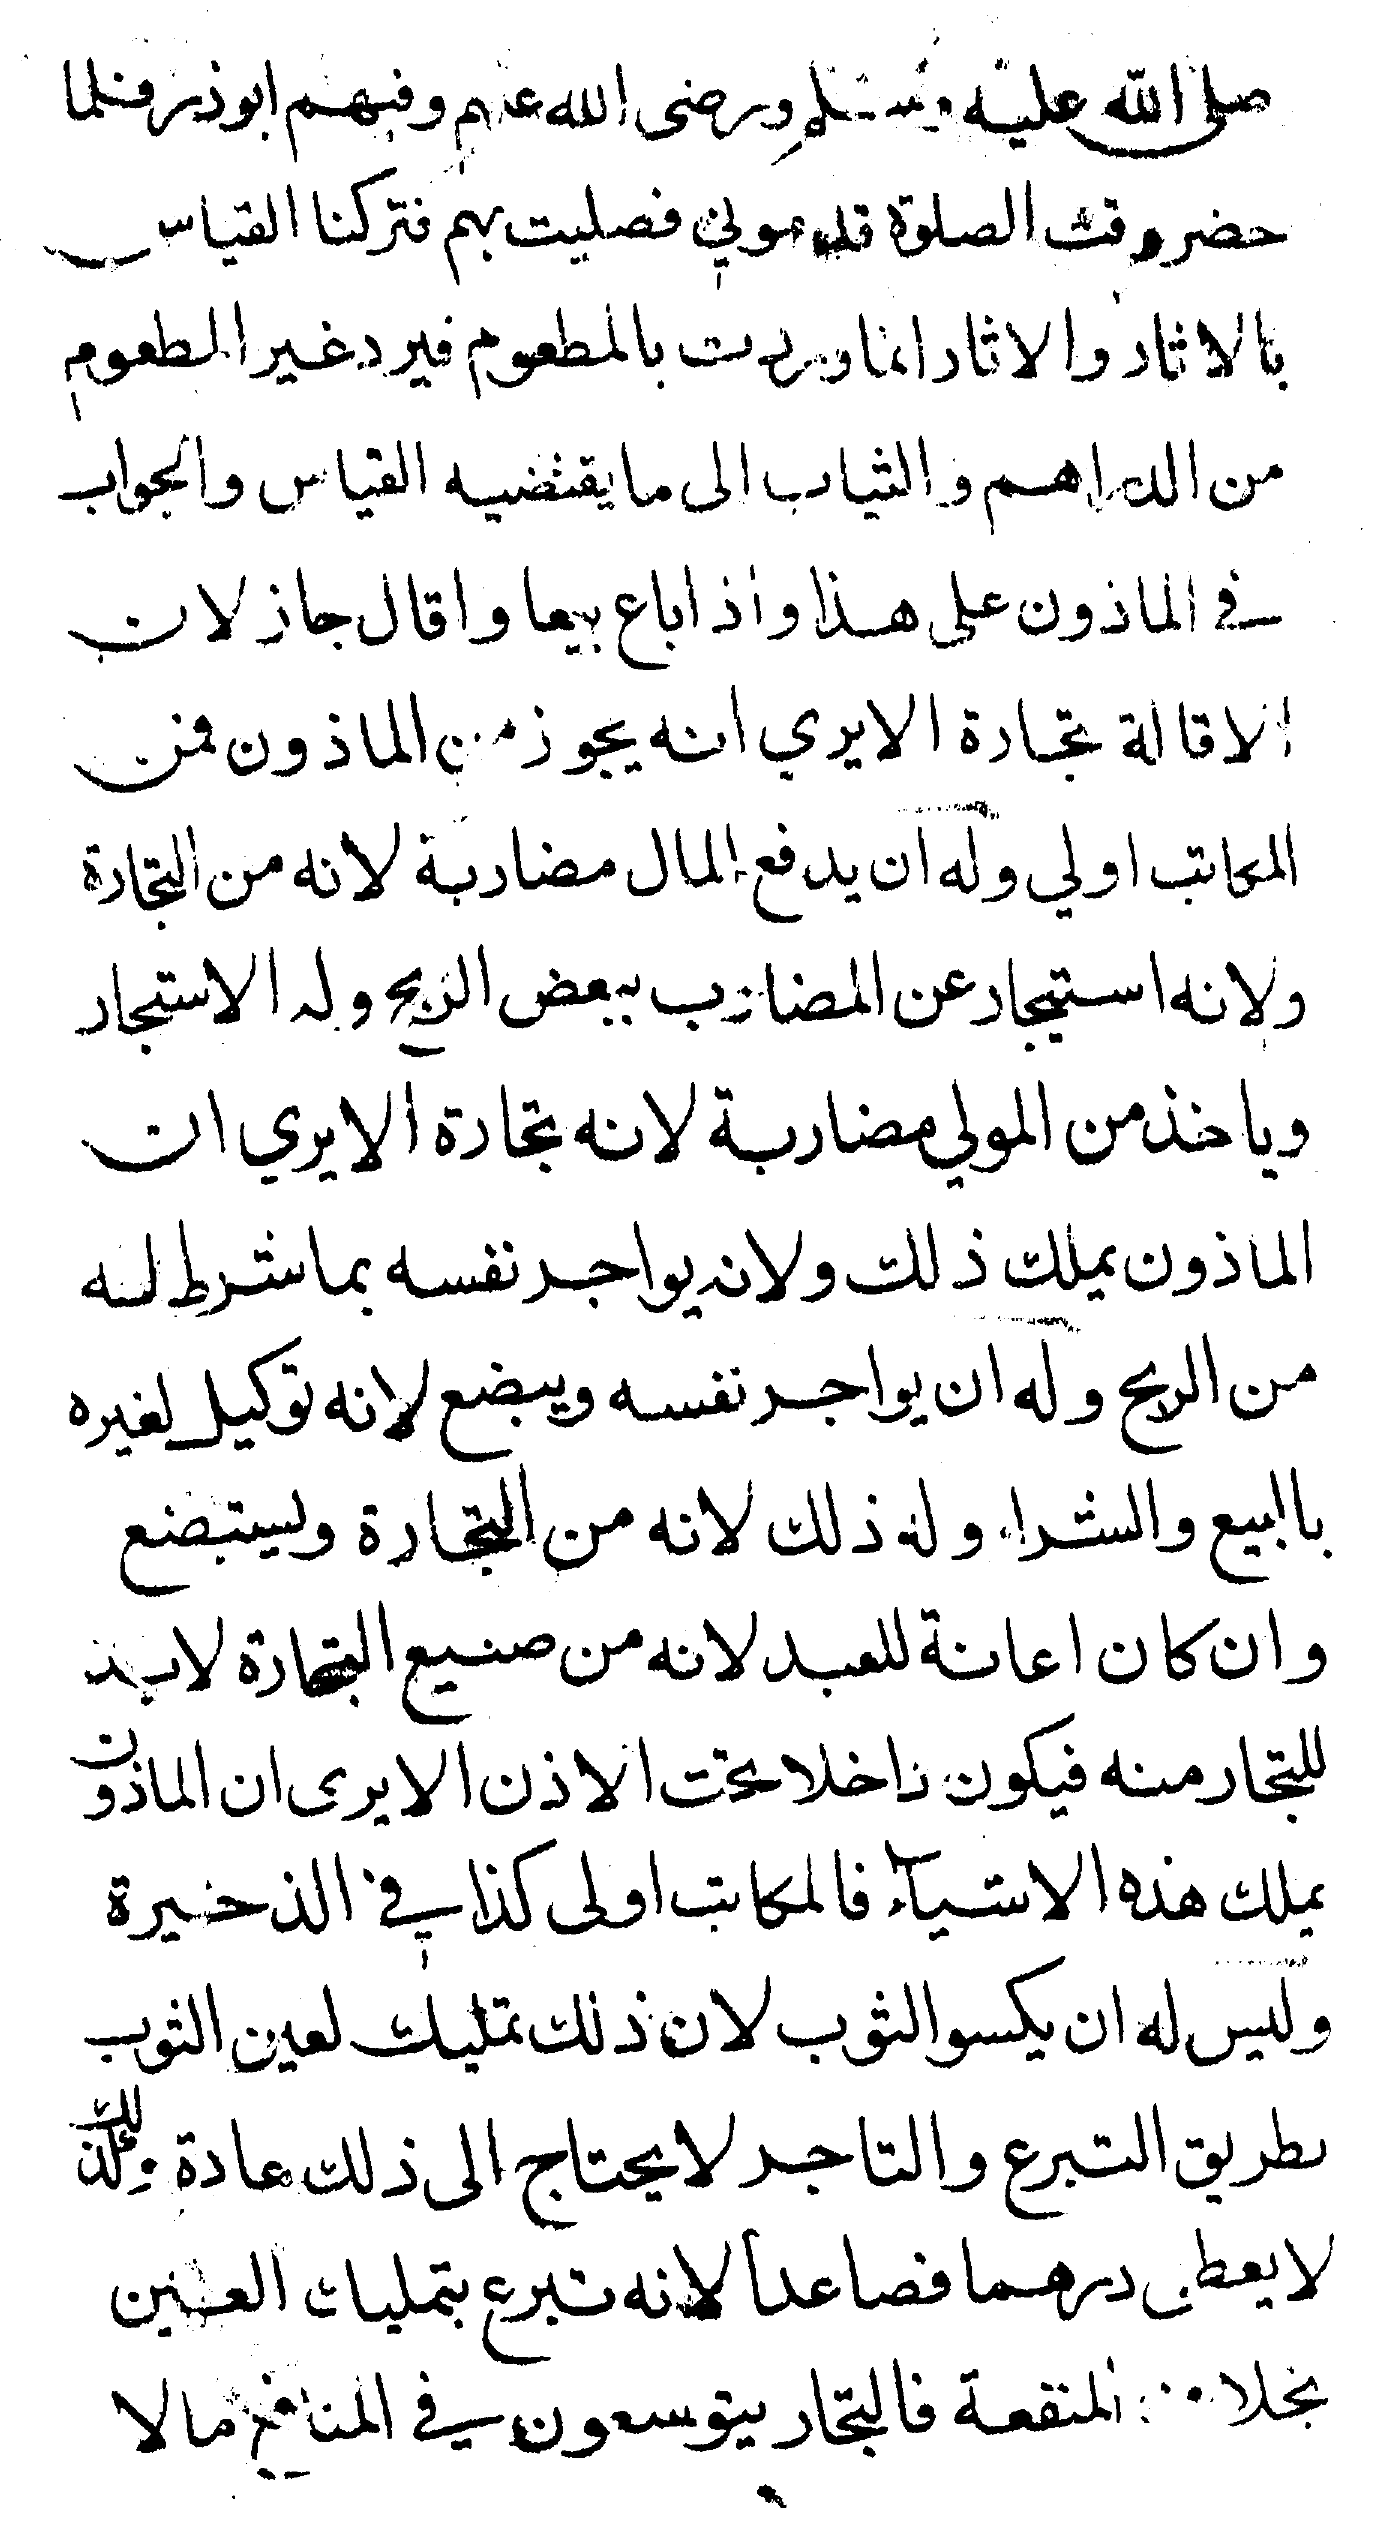 صلى الله عليه وسلم ورضى الله عنهم وفيهم ابوذر فلما
حضر وقت الصلوة قدموني فصليت بهم فتركنا القياس
بالاثار والاثار انما وردت بالمطعوم فيرد غير المطعوم
من الدراهم والثياب الى ما يقتضيه القياس والجواب
في الماذون على هذا واذا باع بيعا واقال جاز لان
الاقالة تجارة الا يري انه يجوز من الماذون فمن
المكاتب اولي وله ان يدفع المال مضاربة لانه من التجارة
ولانه استيجار عن المضارب ببعض الربح وله الاستيجار
وياخذ من المولي مضاربة لانه تجارة الا يري ان
الماذون يملك ذلك ولانه يواجر نفسه بما شرط له
من الربح وله ان يواجر نفسه ويبضع لانه توكيل لغيره
باالبيع والشراء وله ذلك لانه من التجارة ويستبضع
وان كان اعانة للعبد لانه من صنيع التجارة لا بد
للتجار منه فيكون داخلا تحت الاذن الا يرى ان الماذون
يملك هذه الاشيآء فالمكاتب اولى كذا في الذخيرة
وليس له ان يكسو الثوب لان ذلك تمليك لعين الثوب
بطريق التبرع والتاجر لا يحتاج الى ذلك عادة وكذلك
لا يعطى درهما فصاعدا لانه تبرع بتمليك العين
بخلاف المنفعة فالتجار يتوسعون في المنافع ما لا